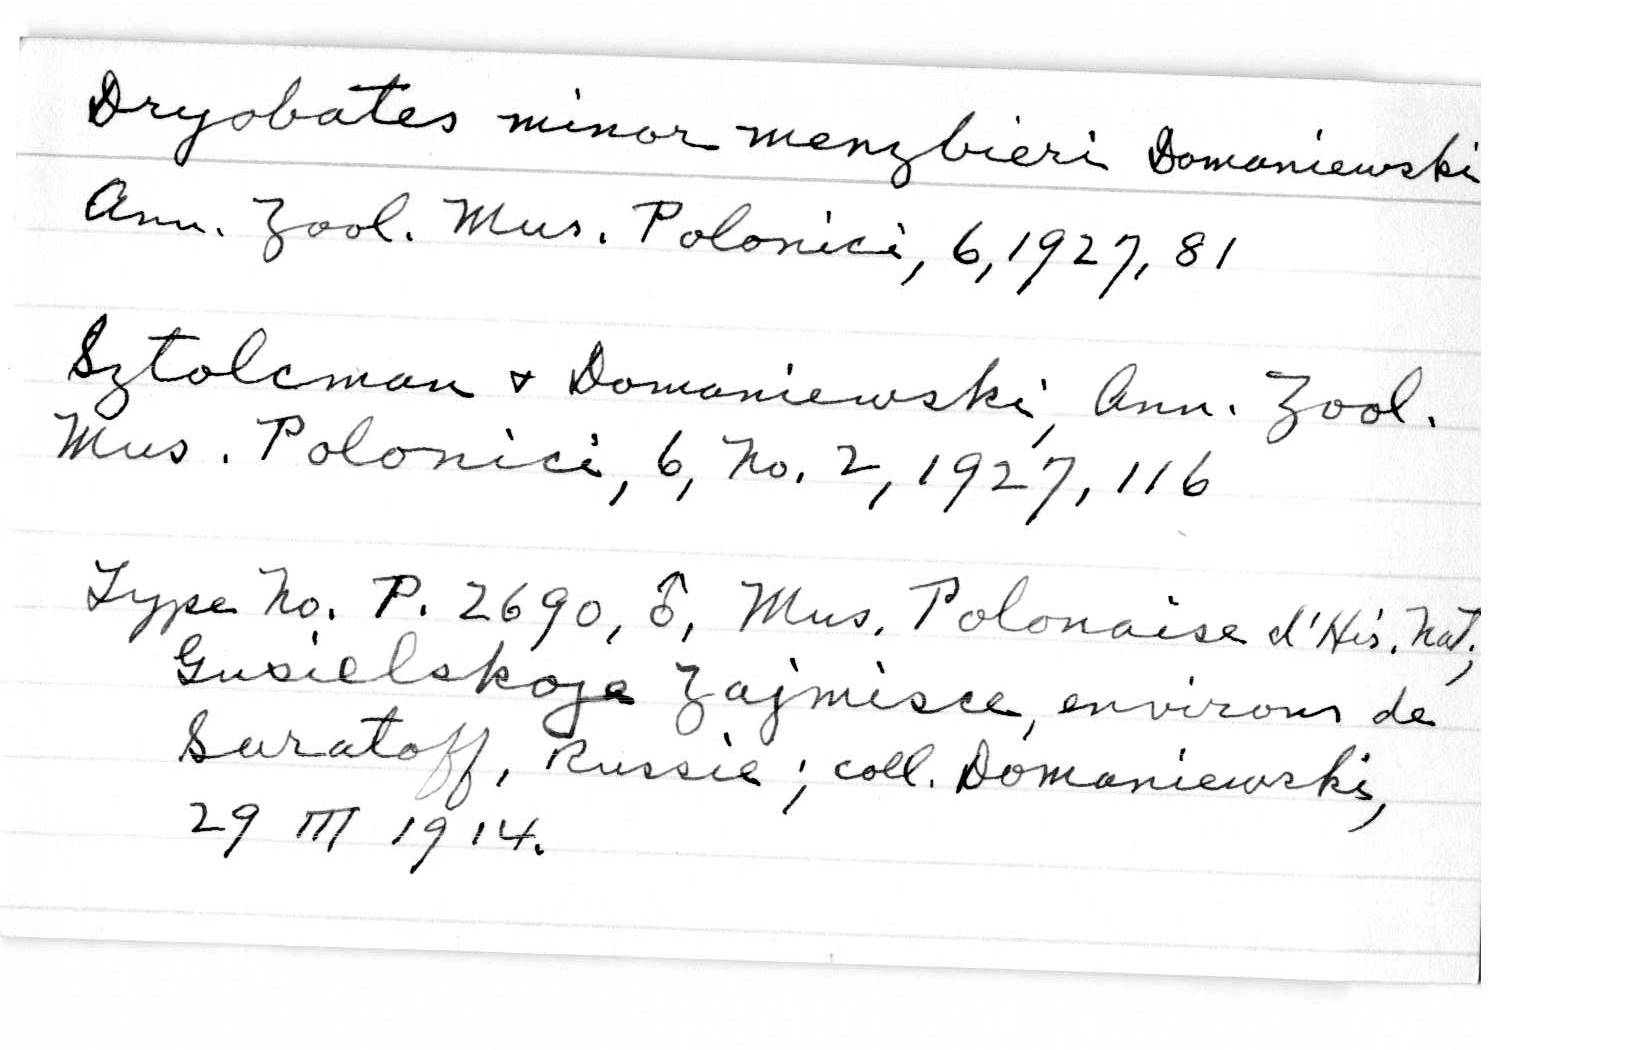 Dryobates minor menzbieri Domaniewski
Ann. Zool. Mus. Polonici, 6, 1927, 81
Sztolcman & Domaniewski, Ann. Zool.
Mus. Polonici, 6, No. 2, 1927, 116
Type No. P. 2690, ♂, Mus. Polonaise d'His. Nat;
Gusielskoje Zajmisce, environs de
Saratoff, Russie; coll. Domaniewski,
29 III 1914.